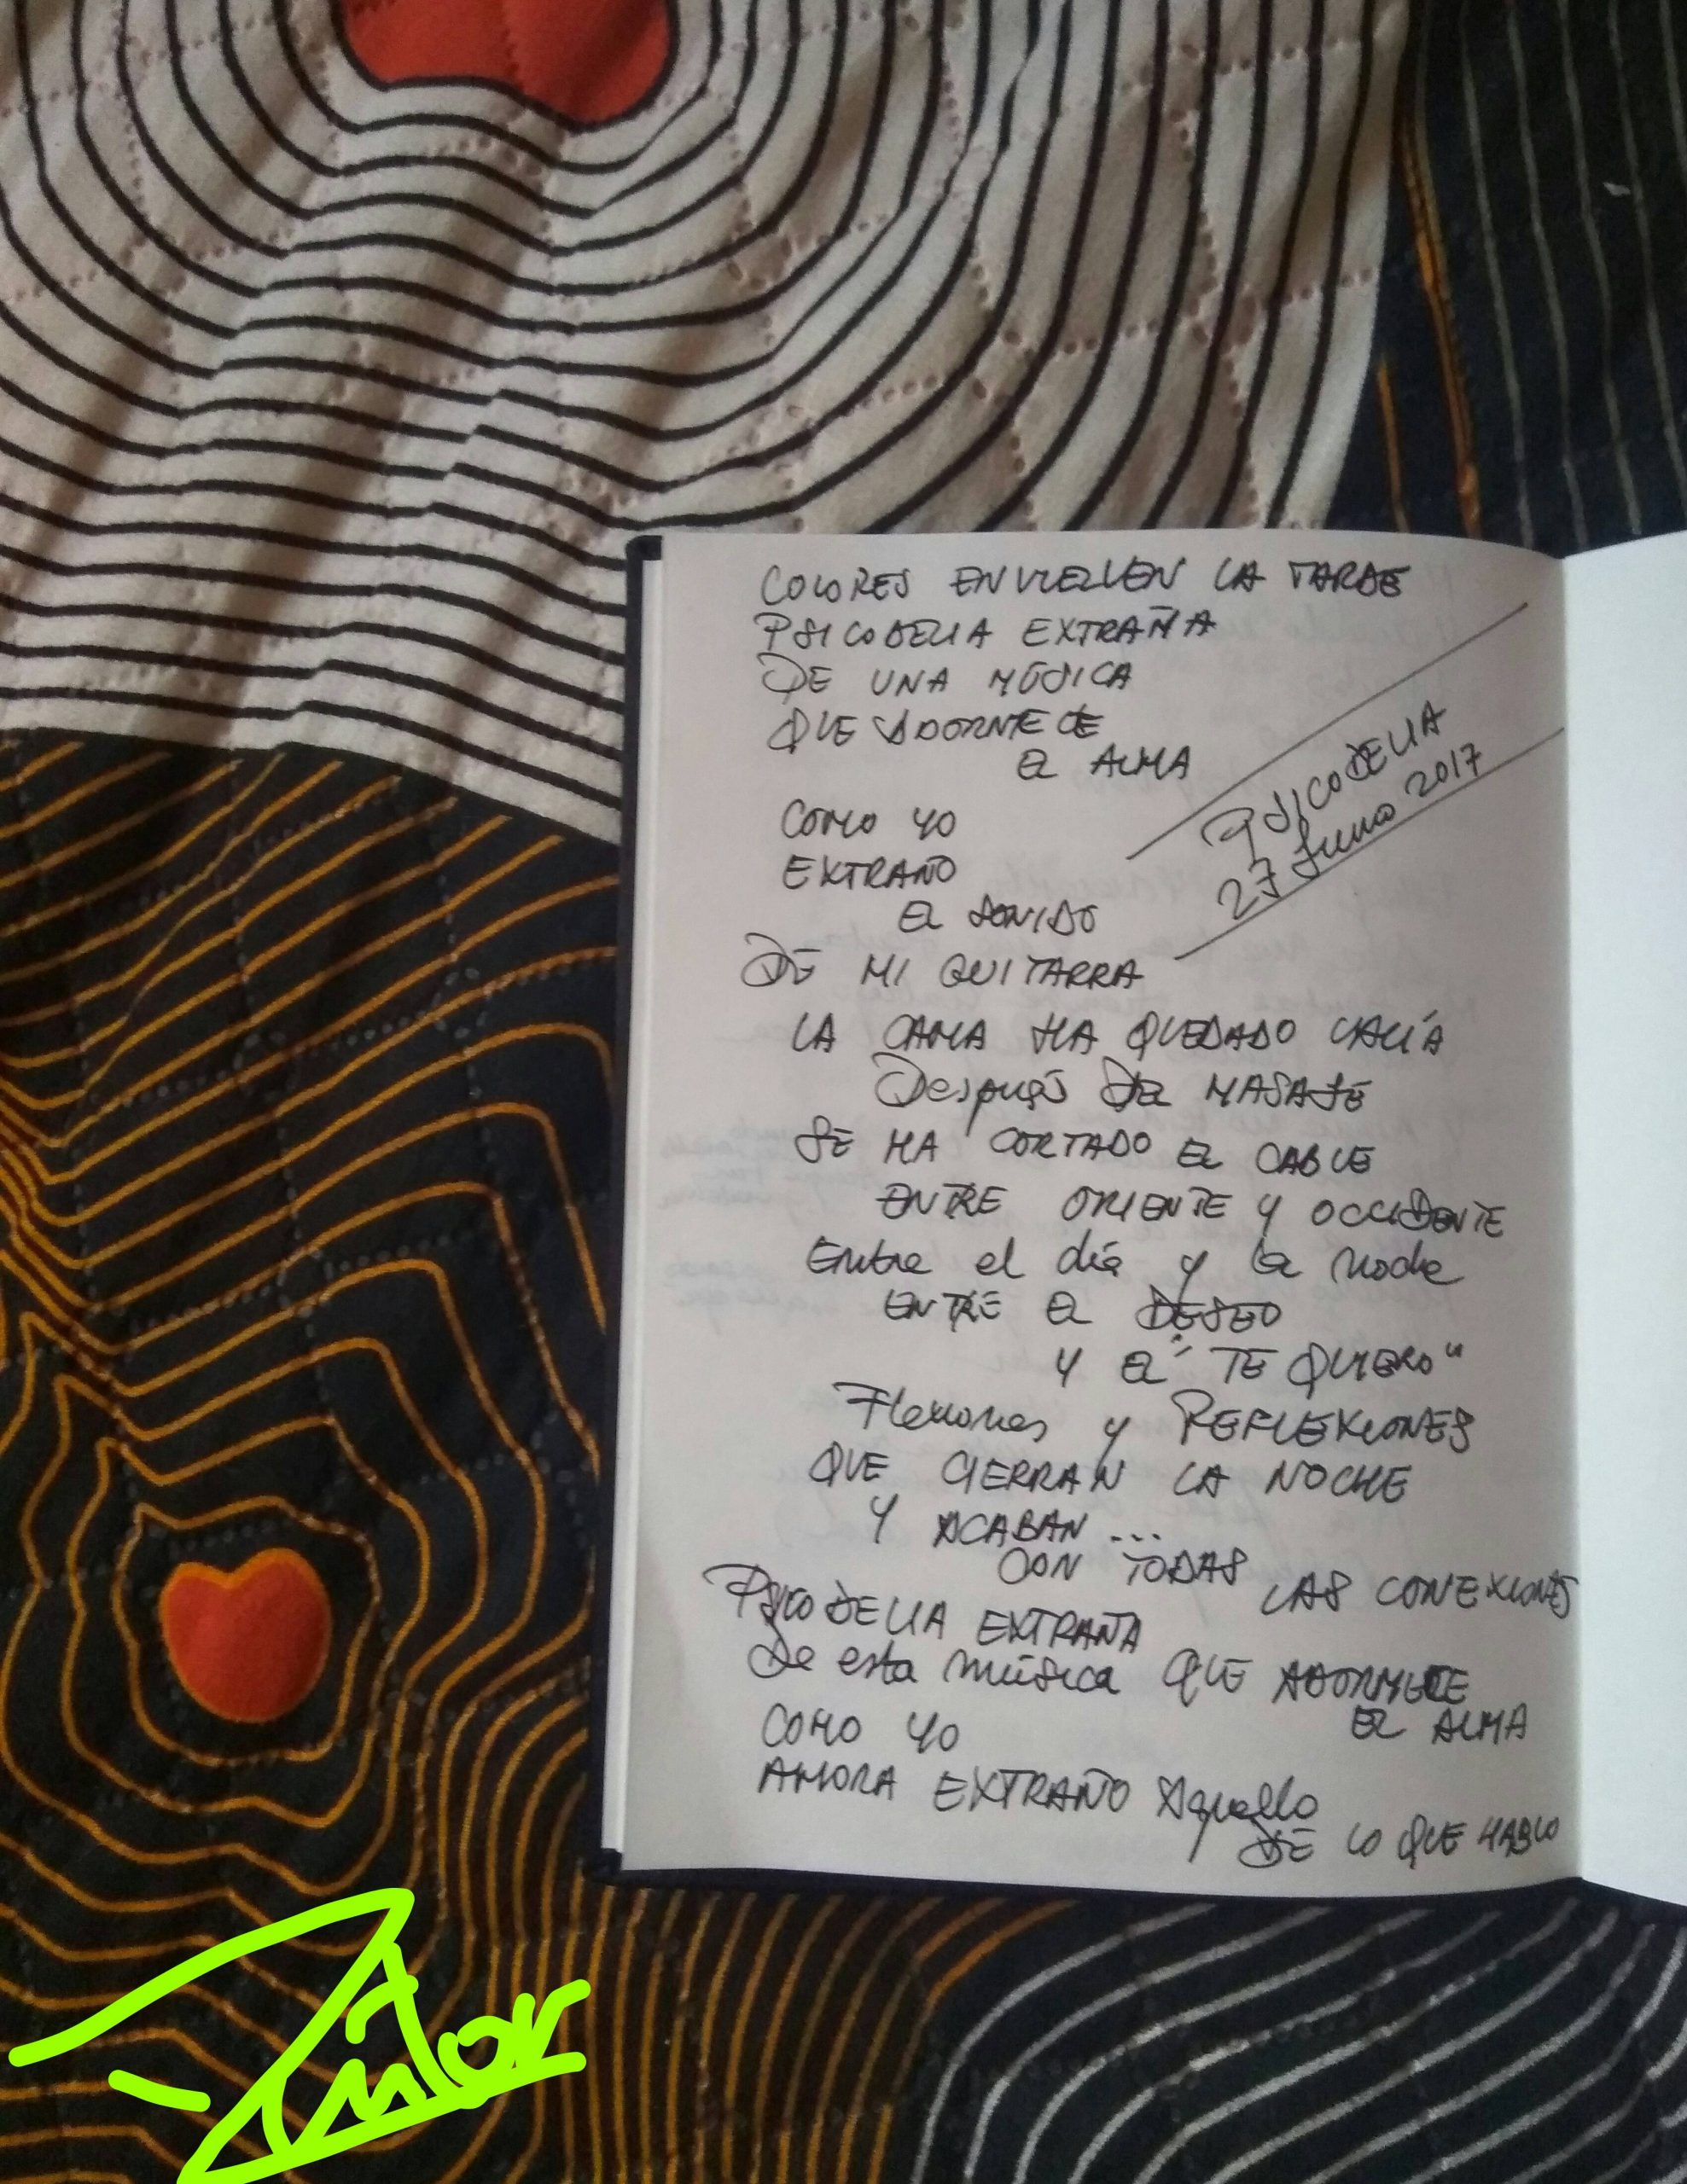 COLORES ENVUELVEN LA TARDE
PSICODELIA EXTRAÑA
DE UNA MÚSICA
QUE ADORMECE
EL ALMA
PSICODELIA
27 Junio 2017
COMO YO
EXTRAÑO
EL SONIDO
DE MI GUITARRA
LA CAMA HA QUEDADO VACÍA
Después DEL MASAJE
SE HA CORTADO EL CABLE
ENTRE ORIENTE Y OCCIDENTE
Entre el día y la noche
ENTRE EL DESEO
Y EL "TE QUIERO"
Flexiones y REFLEXIONES
QUE CIERRAN LA NOCHE
Y ACABAN ...
CON TODAS LAS CONEXIONES
PSICODELIA EXTRAÑA
De esta música QUE ADORMECE
EL ALMA
COMO YO
AHORA EXTRAÑO Aquello
DE LO QUE HABLO